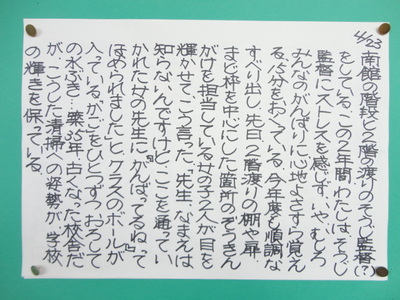 4/23
南館の階段と2階の渡りのそうじ監督(?)
をしている。この2年間わたしは、そうじ
監督にストレスを感じず、いや、むしろ
みんなのがんばりに心地よささえ覚え
る15分をおくている。今年度も順調な
すべり出し。先日、2階渡りの棚や扉、
まど枠を中心にした箇所のぞうきん
がけを担当している女の子2人が目を
輝かせて、こう言った。『先生、なまえは
知らないんですけど、ここを通ってい
かれた女の先生に「がんばってるね」って
ほめられました!』と。クラスのボールが
入っているかごをひとつずつおろして
の水ぶき…。築35年、古くなった校舎だ
が、こうした清掃への姿勢が、学校
の輝きを保っている。